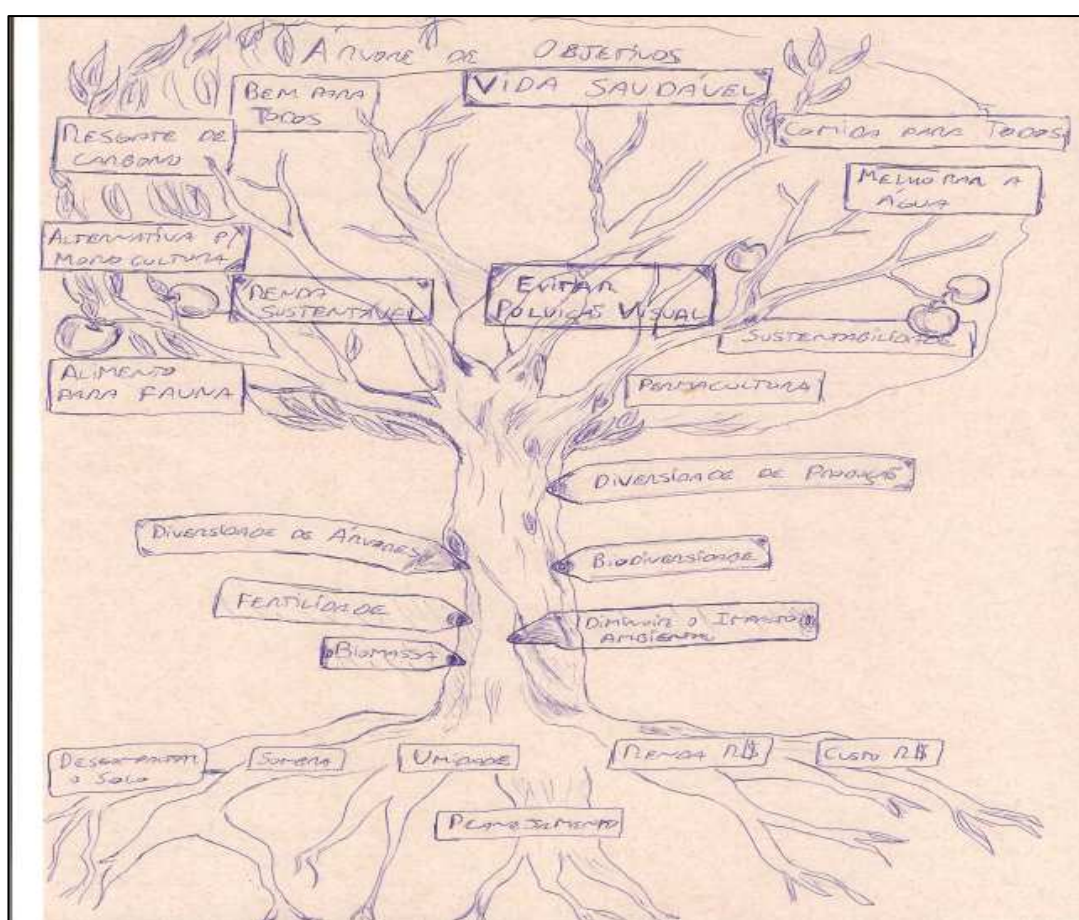 ÁRVORE DE OBJETIVOS
BEM PARA
TODOS
VIDA SAUDÁVEL
RESGATE DE
CARBONO
COMIDA PARA TODOS
MELHORAR A
ÁGUA
ALTERNATIVA P/
MONOCULTURA
RENDA
SUSTENTÁVEL
EVITAR
POLUIÇAS VISUAL
SUSTENTABILIDADE
ALIMENTO
PARA FAUNA
PERMACULTURA
DIVERSIDADE DE PRODUÇAS
DIVERSIDADE DE ÁRVORES
BIODIVERSIDADE
FERTILIDADE
DIMINUIR O IMPACTO
AMBIENTAL
BIOMASSA
DESCOMPACTAR
O SOLO
SOMBRA
UMIDADE
RENDA R$
CUSTO R$
PLANEJAMENTO